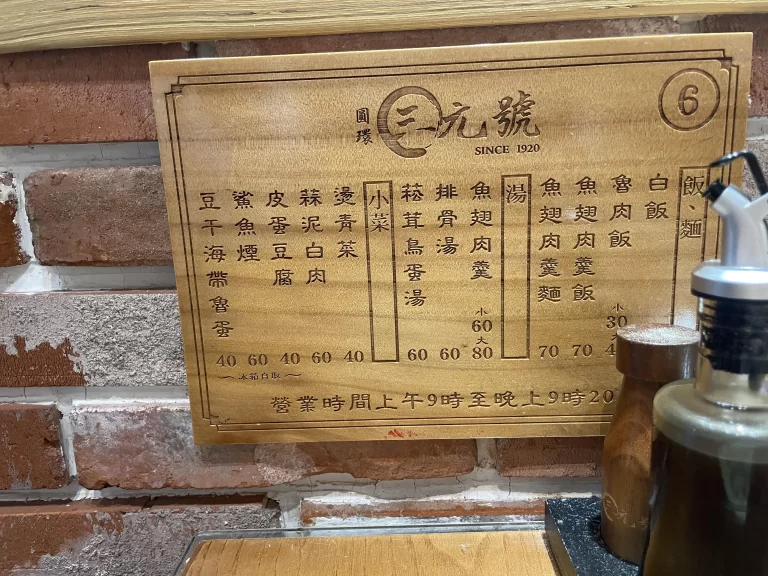 圓環
三元號
SINCE 1920
6
飯、麵
白飯
魯肉飯 小30大
魚翅肉羹飯 70
魚翅肉羹麵 70
湯
魚翅肉羹 小60大80
排骨湯 60
菘茸鳥蛋湯 60
小菜
燙青菜 40
蒜泥白肉 60
皮蛋豆腐 40
鯊魚煙 60
豆干海帶魯蛋 40
冰箱自取
營業時間上午9時至晚上9時20